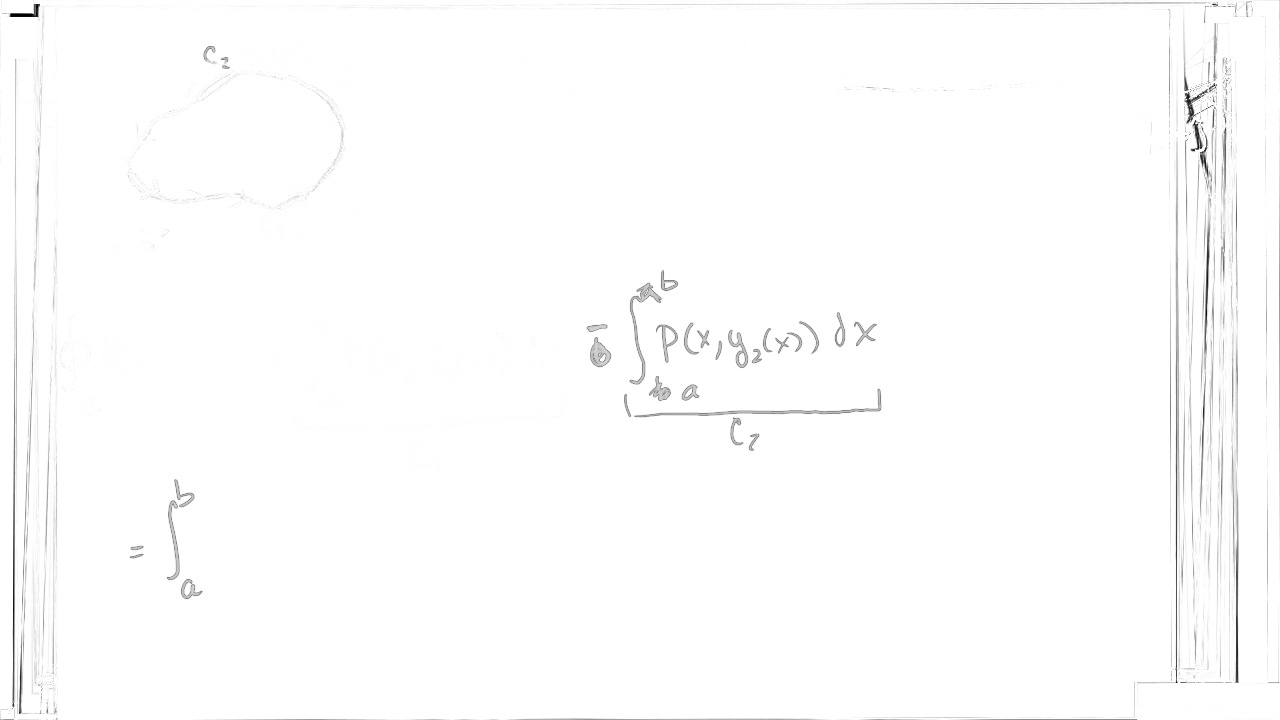 C₂
- ∫ₐᵇ P(x, y₂(x)) dx
C₂
= ∫ₐᵇ